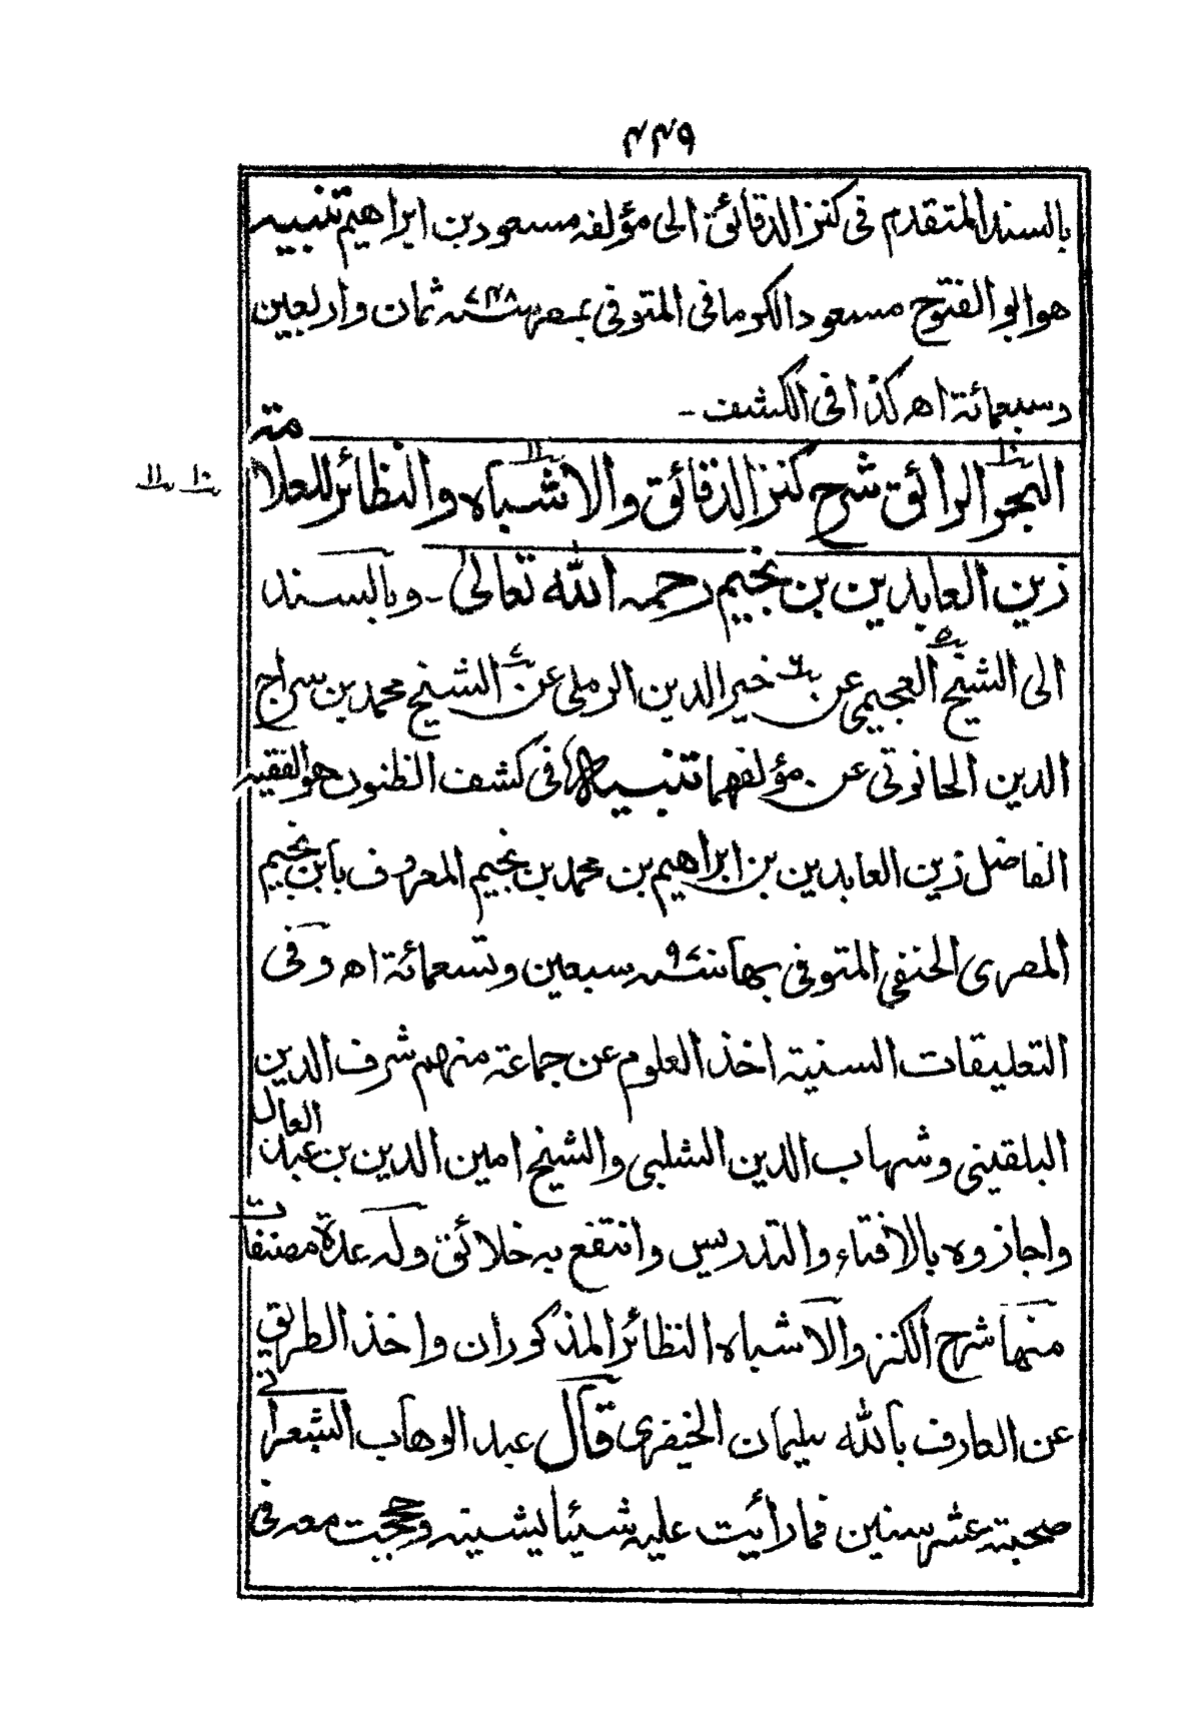 ٤٤٩
بالسند المتقدم فى كنز الدقائق الى مؤلفه مسعود بن ابراهيم تنبيه
هو ابو الفتوح مسعود الكرمانى المتوفى بمصر سنة ٧٤٨ ثمان واربعين
وسبعمائة اھ كذا فى الكشف ۔
منه
البحر الرائق شرح كنز الدقائق والاشباه والنظائر للعلا
١٠ ١١
زين العابدين بن نجيم رحمه الله تعالى ۔ وبالسند
الى الشيخ العجيمى عن خير الدين الرملى عن الشيخ محمد بن سراج
الدين الحانوتى عن مؤلفهما تنبيه فى كشف الظنون هو الفقيه
الفاضل زين العابدين بن ابراهيم بن محمد بن نجيم المعروف بابن نجيم
المصرى الحنفى المتوفى بها سنة ٩٧٠ سبعين وتسعمائة اھ وفى
التعليقات السنية اخذ العلوم عن جماعة منهم شرف الدين
البلقينى وشهاب الدين الشلبى والشيخ امين الدين بن عبد العال
واجازوه بالافتاء والتدريس وانتفع به خلائق وله عدة مصنفات
منها شرح الكنز والاشباه النظائر المذكوران واخذ الطريق
عن العارف بالله سليمان الخيضرى قال عبد الوهاب الشعرانى
صحبته عشر سنين فما رأيت عليه شيئا يشينه وحججت معه فى